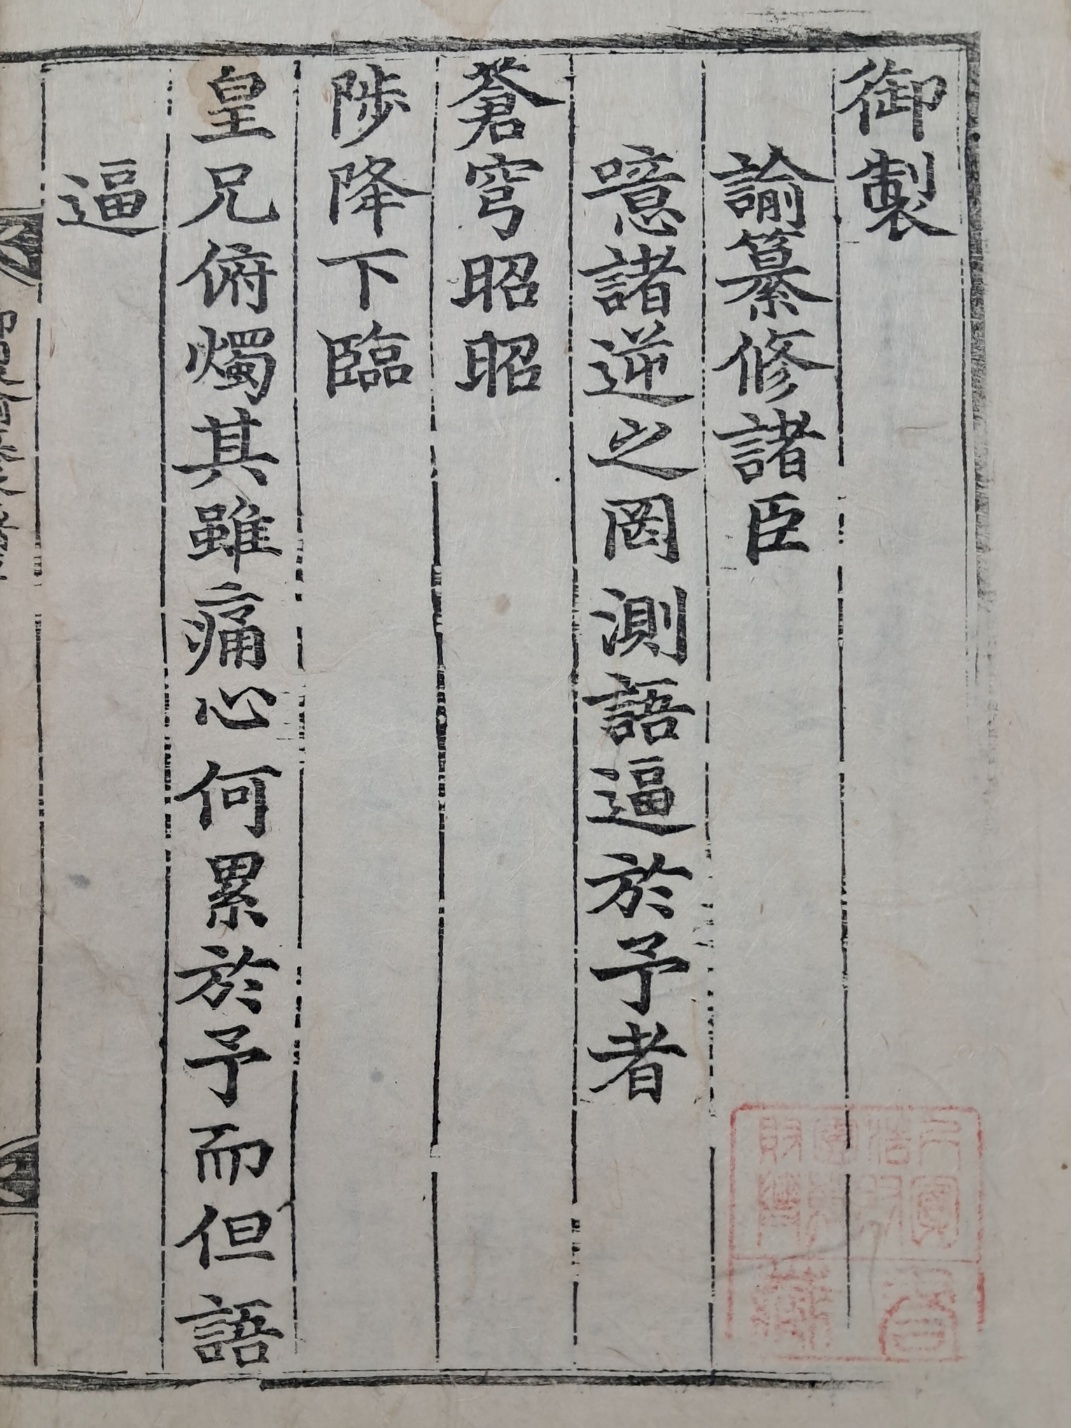 御製
諭纂修諸臣
噫諸逆之罔測語逼於予者
蒼穹昭昭
陟降下臨
皇兄俯燭其雖痛心何累於予而但語
逼